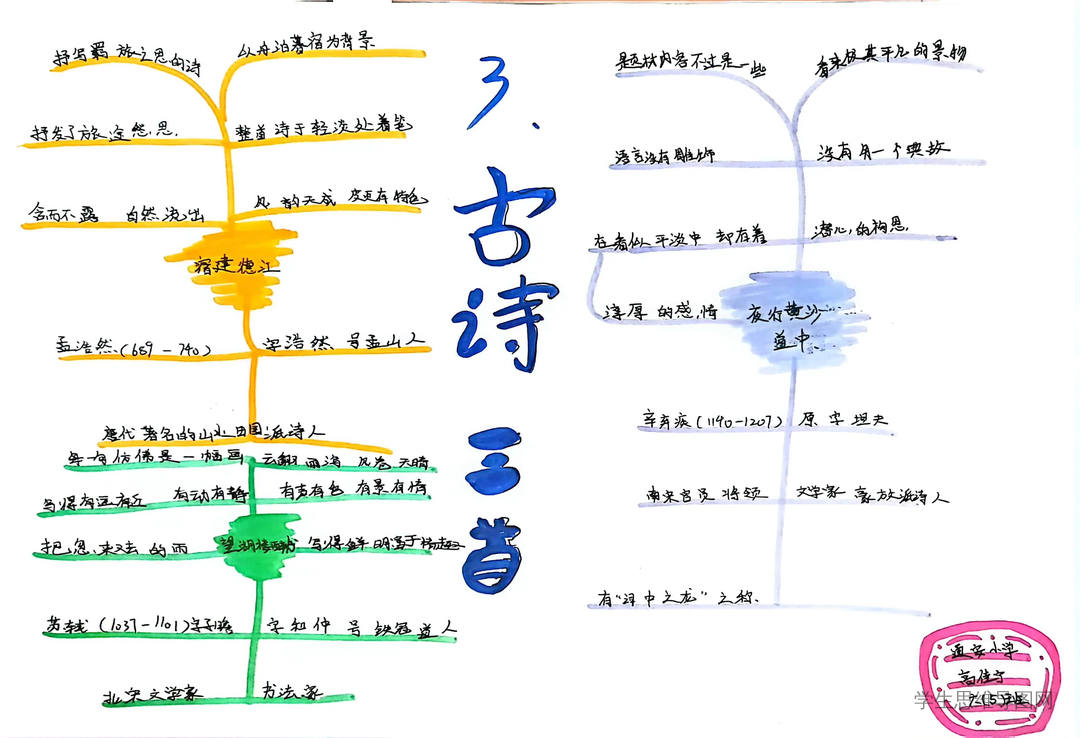 3.古诗三首
抒写羁旅之思的诗
以舟泊暮宿为背景
抒发了旅途愁思.
整首诗于轻淡处着笔
含而不露 自然流出
风韵天成
宿建德江
孟浩然(689-740)
字浩然 号孟山人
唐代著名的山水田园派诗人
每句仿佛是一幅画
云翻雨泻 风卷天晴
写得有远有近 有动有静
有声有色 有景有情
把忽来又去的雨
写得鲜明
苏轼(1037-1101)字子瞻
字和仲 号铁冠道人
北宋文学家
书法家
题材内容不过是一些
看来极其平凡的景物
语言没有雕饰
没有用一个典故
在看似平淡中 却有着
潜心的构思.
淳厚的感情
夜行黄沙
道中
辛弃疾(1140-1207)
原字坦夫
南宋官员 将领
文学家 豪放派诗人
有“词中之龙”之称.
通安小学
高佳宁
学生思维导图网